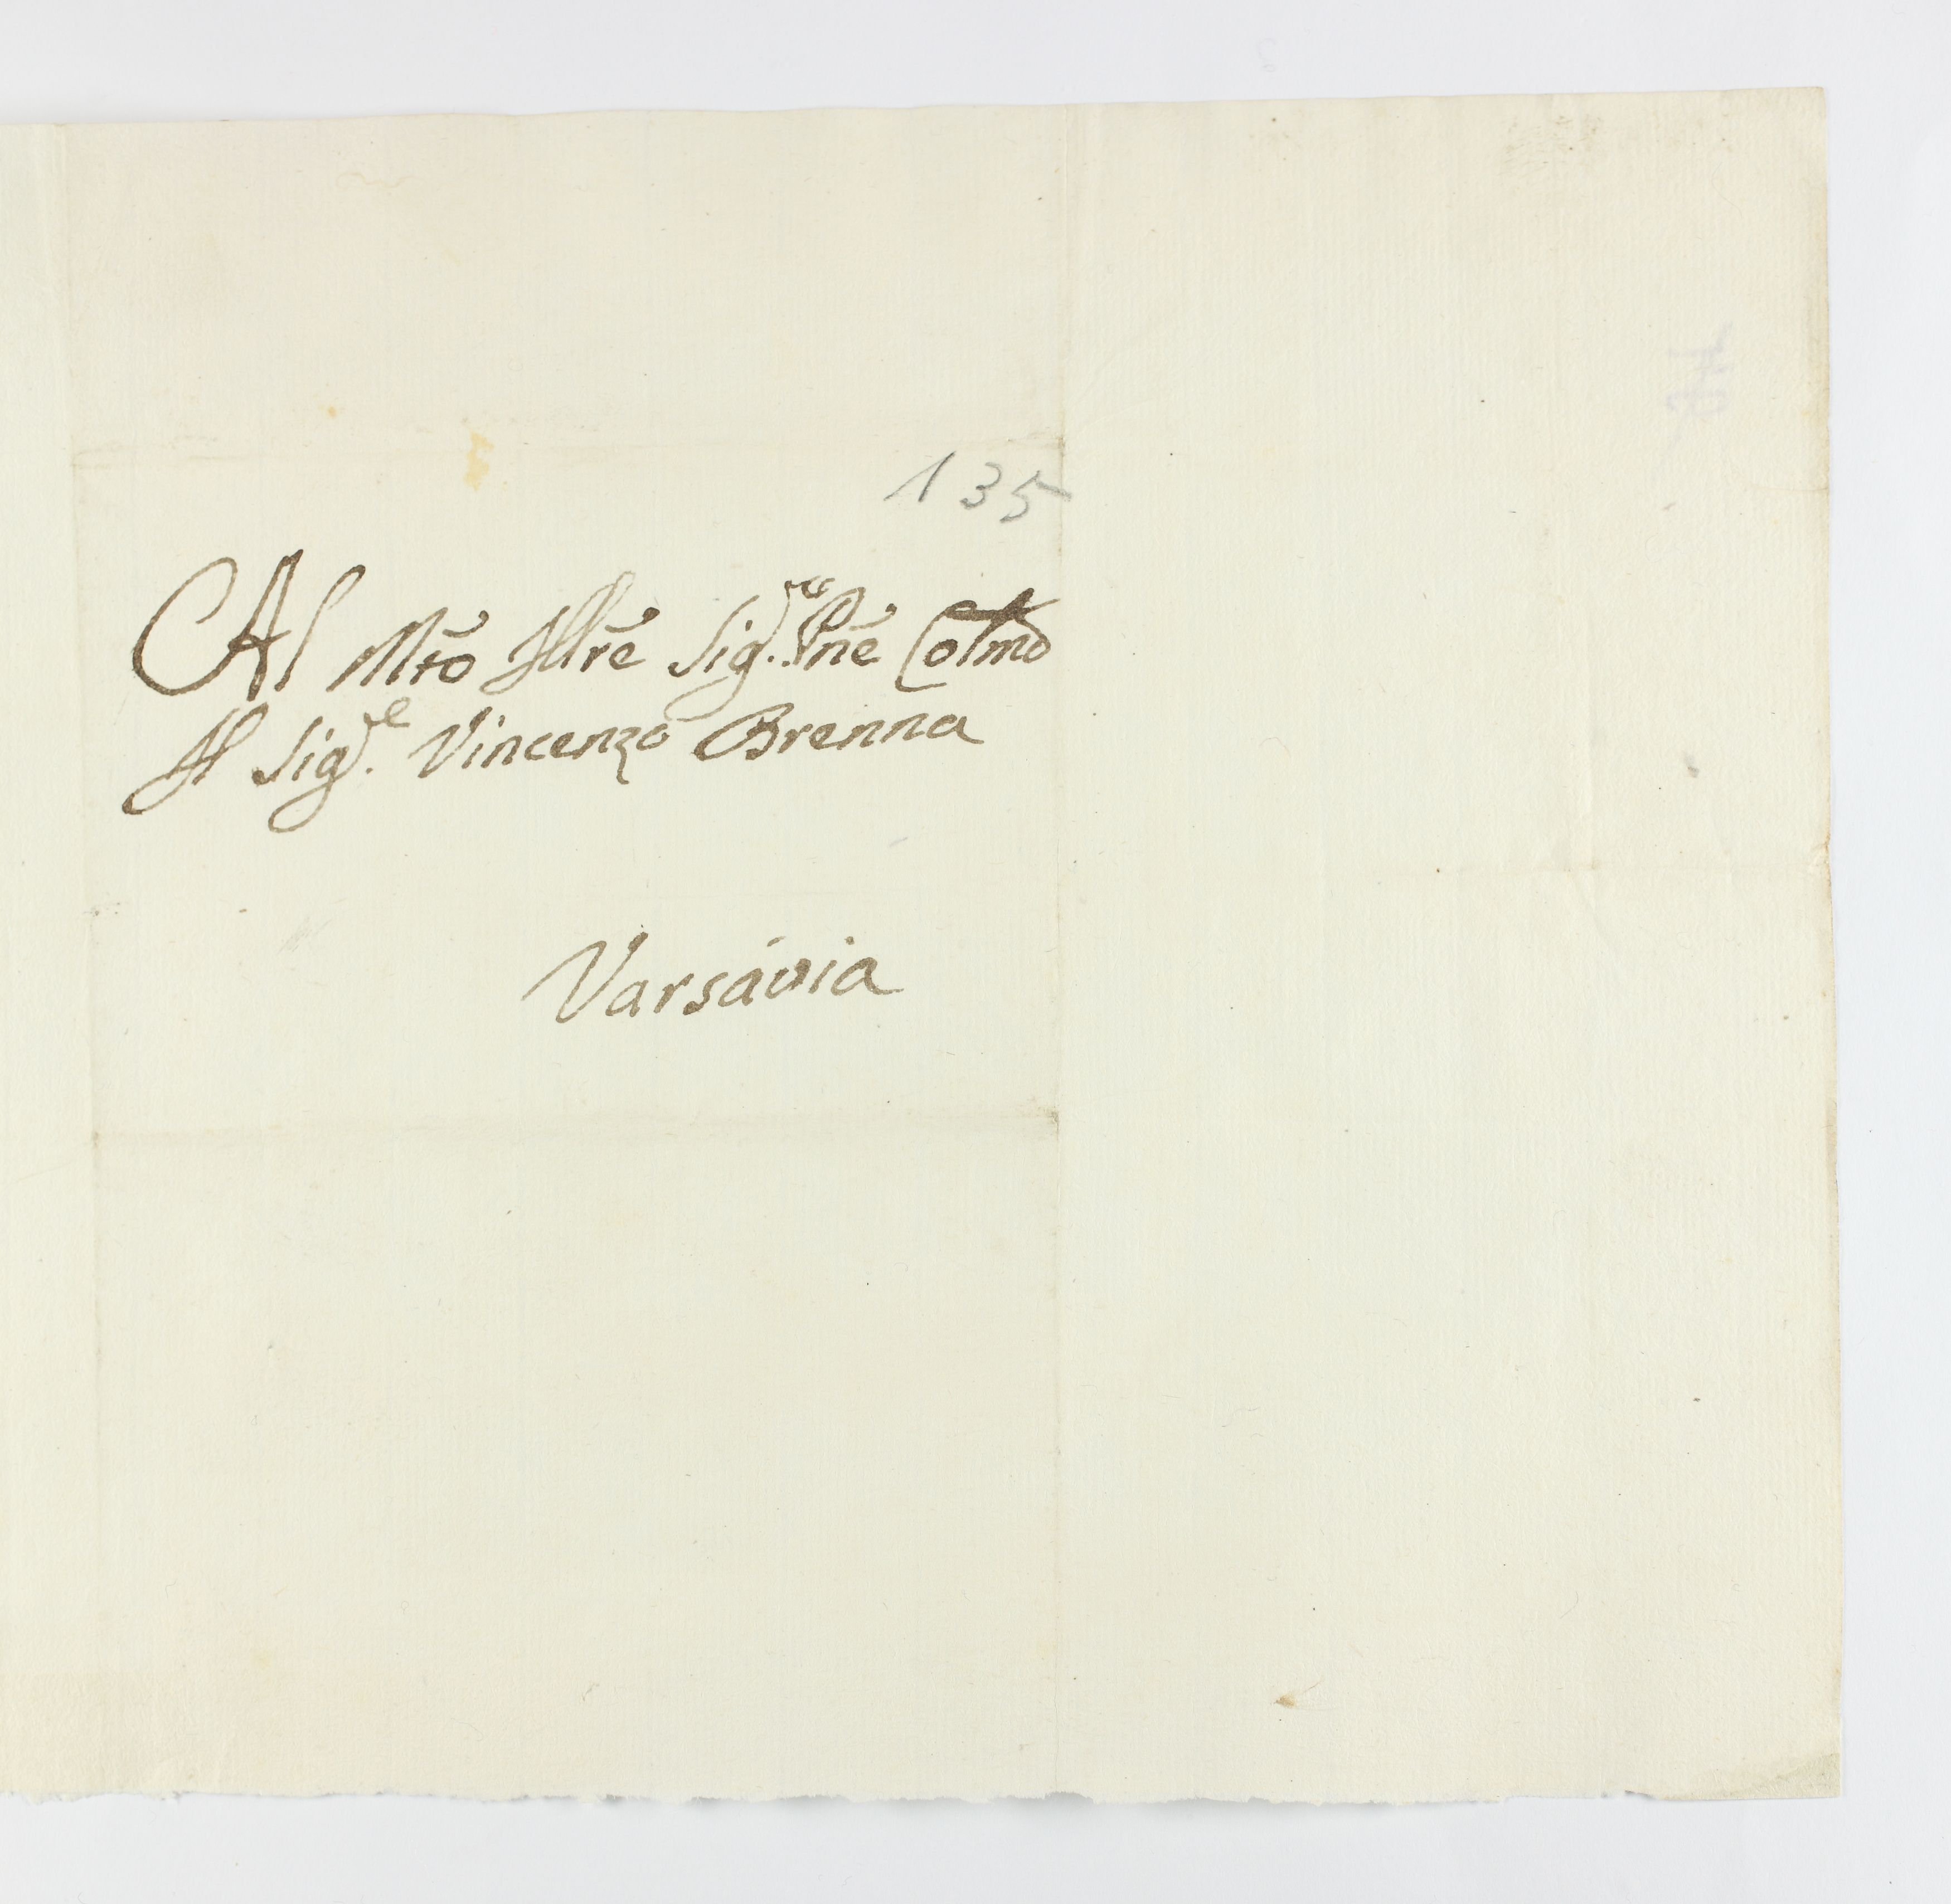 135
Al Mto Illre Sig.re Pne Colmo
Il Sig.re Vincenzo Brenna
Varsávia